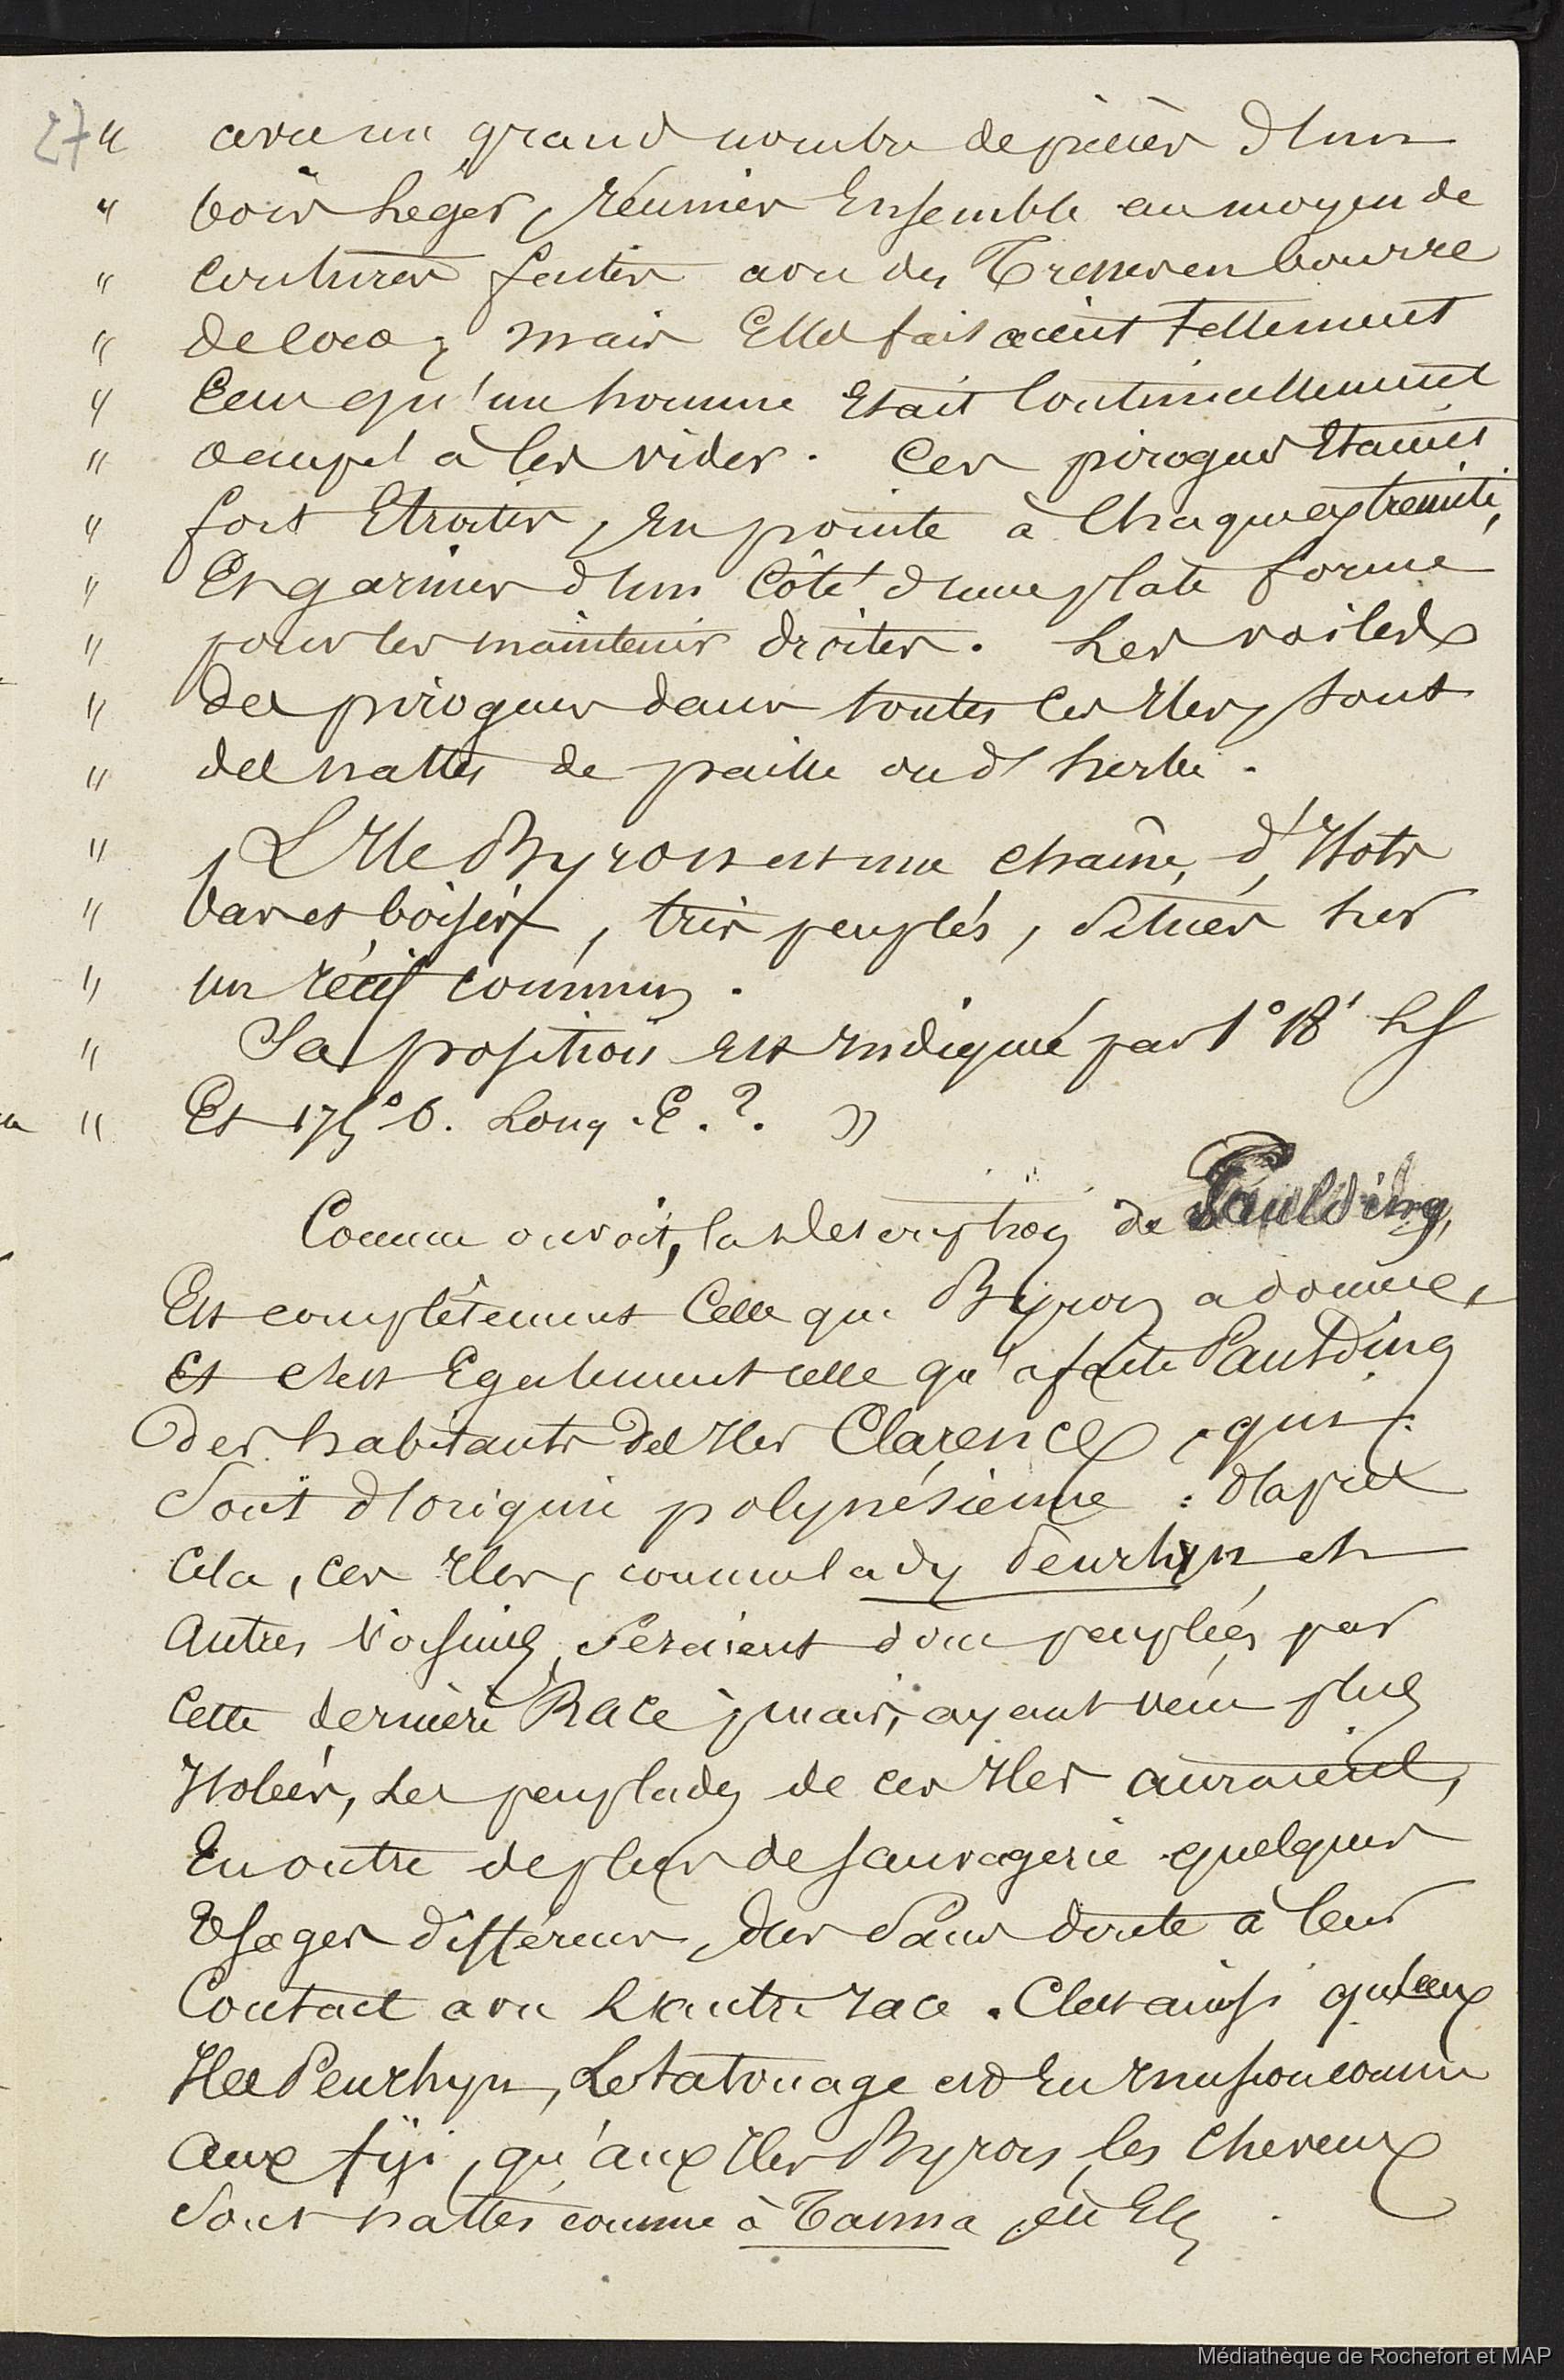 27 " avec un grand nombre de pièces d'un
" bois léger, réunies Ensemble au moyen de
" coutures faites avec des Tresses en bourre
" de coco; mais Elles faisaient tellement
" Eau qu'un homme Etait Continuellement
" occupé à les vider. Ces pirogues Etaient
" fort Etroites, En pointe à Chaque extremité,
" Et garnies d'un Côté d'une plate forme
" pour les maintenir droites. Les voiles
" des pirogues dans toutes ces Iles, sont
" des nattes de paille ou d'herbe.
" L'Ile Byron est une chaîne, d'Ilots
" bas et boisés, très peuplés, Situés sur
" un récif commun.
" Sa position est Indiquée par 1° 18' LS
" Et 175° 0. Long. E. ?. »
Comme on voit, la description de Paulding,
Est complètement Celle que Byron a donnée,
Et c'est Egalement celle qu'a faite Paulding
des habitants des Iles Clarence, qui
Sont d'origine polynésienne : d'après
Cela, ces Iles, comme lady Penrhyn et
Autres Voisines, Seraient donc peuplées par
Cette dernière Race ; mais, ayant vécu plus
Isolées, Les peuplades de ces Iles auraient,
En outre de plus de sauvagerie quelques
Usages différens, dus Sans doute à leur
Contact avec L'autre race. C'est ainsi qu'aux
Iles Penrhyn, Le tatouage est En Incision comme
Aux fiji, qu'aux Iles Byron, les cheveux
Sont nattés comme à Tanna, etc Etc
Médiathèque de Rochefort et MAP